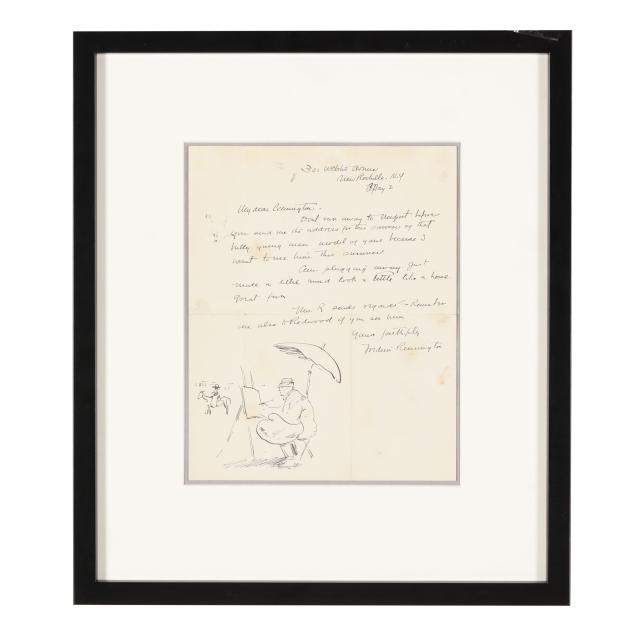 Webster Avenue
New Rochelle. N.Y
May 2
My dear Remington -
Dont run away to Newport before
you send me the address for this summer of that
bully young man model of yours because I
want to use him this summer
Am plugging away. Just
made a mud look a little like a horse
Great fun
Mrs R sends regards - Remember
me also to Redwood if you see him
Yours faithfully
Frederic Remington